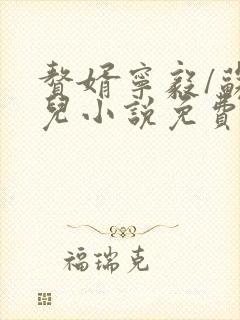 贅婿寧毅/蘇
兒小說免費
福瑞克